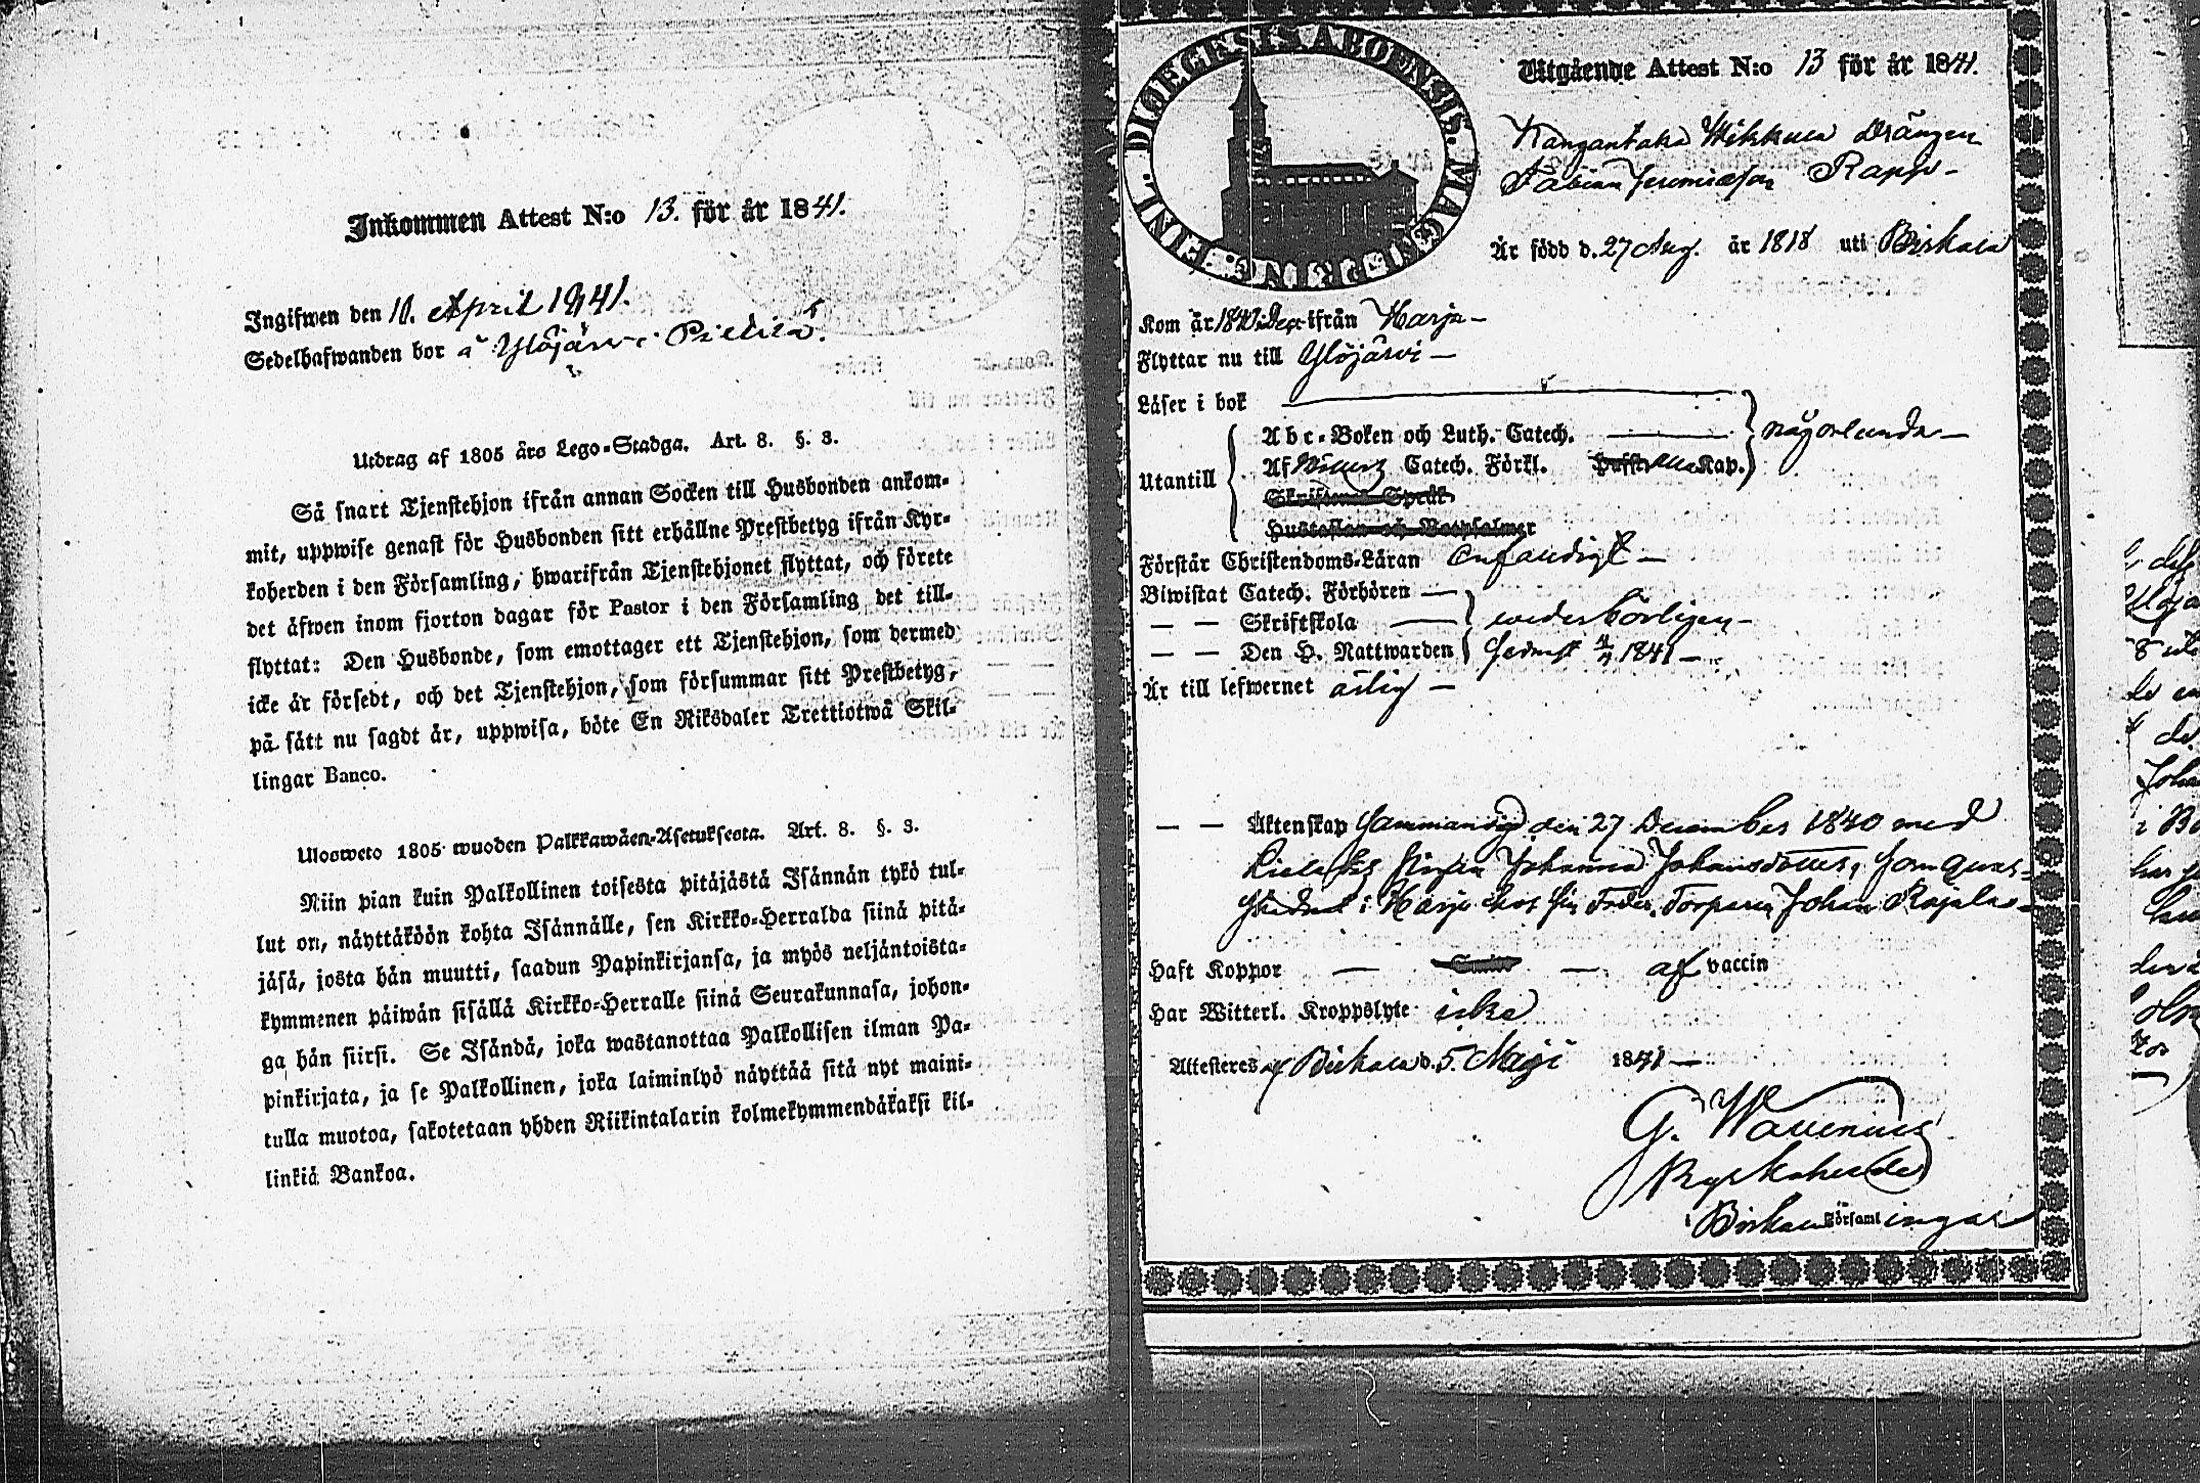 Inkommen Attest N:o 13. för år 1841.
Ingifwen den 10. April 1841.
Sedelhafwanden bor å Ylöjärvi
Utdrag af 1805 års Lego-Stadga. Art. 8. §. 3.
Så snart Tjenstehjon ifrån annan Socken till Husbonden ankom-
mit, uppwise genast för Husbonden sitt erhållne Prestbetyg ifrån Kyr-
koherden i den Församling, hwarifrån Tjenstehjonet flyttat, och förete
det äfwen inom fjorton dagar för Pastor i den Församling det till-
flyttat: Den Husbonde, som emottager ett Tjenstehjon, som dermed
icke är försedt, och det Tjenstehjon, som försummar sitt Prestbetyg,
på sätt nu sagdt är, uppwisa, böte En Riksdaler Trettiotwå Skil-
lingar Banco.
Ulosweto 1805 wuoden Palkkawäen-Asetuksesta. Art. 8. §. 3.
Niin pian kuin Palkollinen toisesta pitäjästä Isännän tykö tul-
lut on, näyttäköön kohta Isännälle, sen Kirkko-Herralda siinä pitä-
jäsä, josta hän muutti, saadun Papinkirjansa, ja myös neljäntoista-
kymmenen päiwän sisällä Kirkko-Herralle siinä Seurakunnasa, johon-
ga hän siirsi. Se Isändä, joka wastanottaa Palkollisen ilman Pa-
pinkirjata, ja se Palkollinen, joka laiminlyö näyttää sitä nyt maini-
tulla muotoa, sakotetaan yhden Riikintalarin kolmekymmendäkaksi kil-
linkiä Bankoa.
DIOECESIS ABOENSIS. MAGN. PRINC. FINL.
Utgående Attest N:o 13 för år 1841.
Kangantaka Mikkula Drängen
Fabian Jeremiasson Rapp-
Är född d. 27 Aug. år 1818 uti Birkala
Kom år 1840 i Dec. ifrån Harju-
Flyttar nu till Ylöjärvi-
Läser i bok
Abc-Boken och Luth. Catech. någorlunda-
Utantill
Af Catech. Förkl. Kap.
Skriftenes Språk
Hustaflan och Botpsalmer
Förstår Christendoms-Läran enfaldigt-
Biwistat Catech. Förhören
— — Skriftskola wederbörligen-
— — Den H. Nattwarden senast 1841-
Är till lefwernet ärlig-
— — Äktenskap Sammanvigd den 27 December 1840 med
Johanna Johansdotter, som qvar-
i Harju hos sin Fader Torparen Johan Rajala-
Haft Koppor — — af vaccin
Har Witterl. Kroppslyte icke
Attesteres af Birkala d. 5. Maji 1841-
G. Wavenius
Kyrkoherde
i Birkala Församlingar